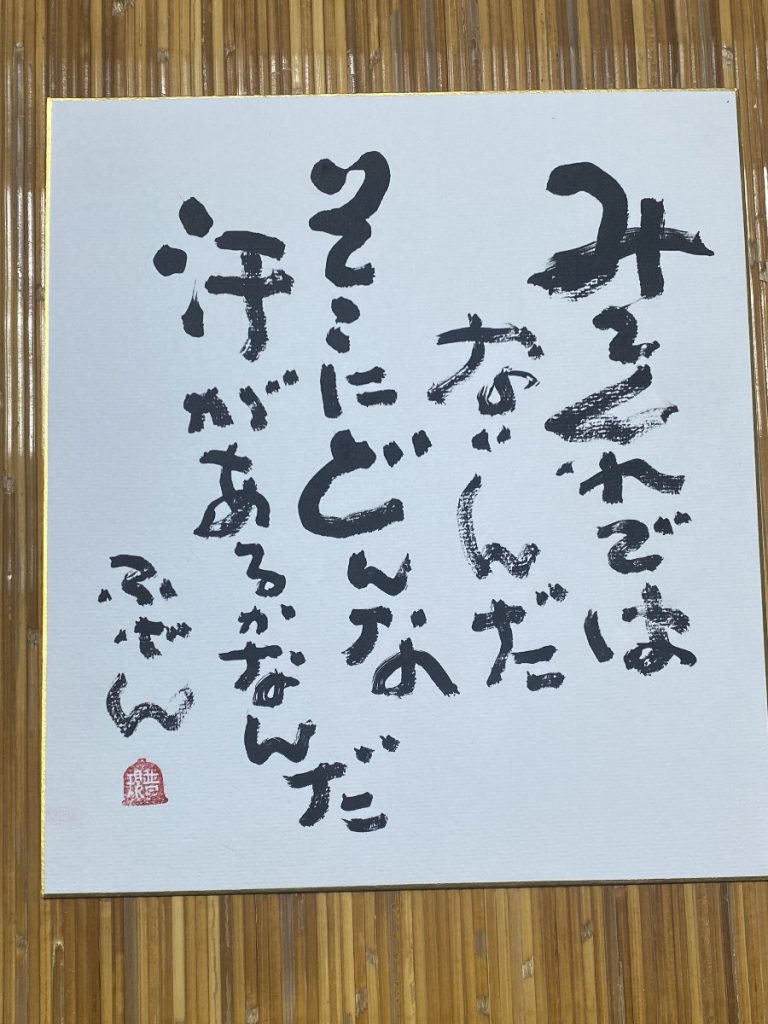 みてくれでは
ないんだ
そこにどんな
汗があるかなんだ
ふげん
普現